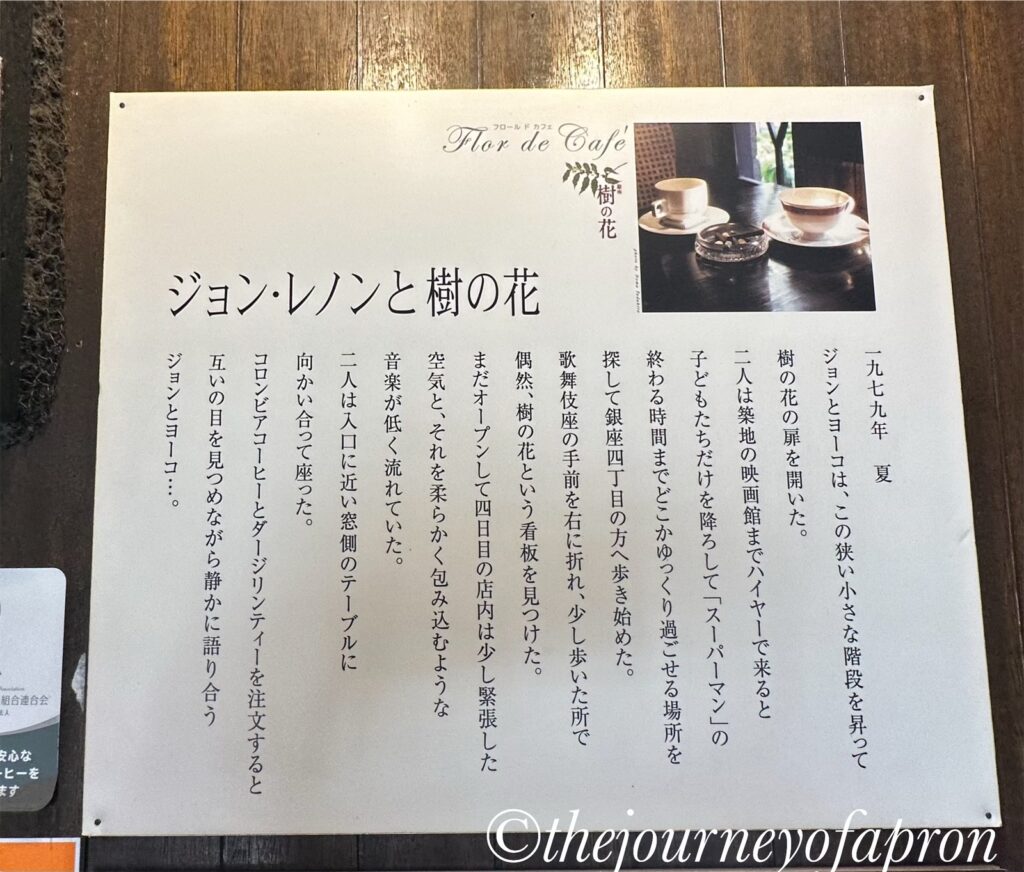 フロール ド カフェ
Flor de Café
銀座
樹の花
ジョン・レノンと樹の花
一九七九年　夏
ジョンとヨーコは、この狭い小さな階段を昇って
樹の花の扉を開いた。
二人は築地の映画館までハイヤーで来ると
子どもたちだけを降ろして「スーパーマン」の
終わる時間までどこかゆっくり過ごせる場所を
探して銀座四丁目の方へ歩き始めた。
歌舞伎座の手前を右に折れ、少し歩いた所で
偶然、樹の花という看板を見つけた。
まだオープンして四日目の店内は少し緊張した
空気と、それを柔らかく包み込むような
音楽が低く流れていた。
二人は入口に近い窓側のテーブルに
向かい合って座った。
コロンビアコーヒーとダージリンティーを注文すると
互いの目を見つめながら静かに語り合う
ジョンとヨーコ…。
組合連合会
法人
安心な
ーヒーを
ます
©thejourneyofapron